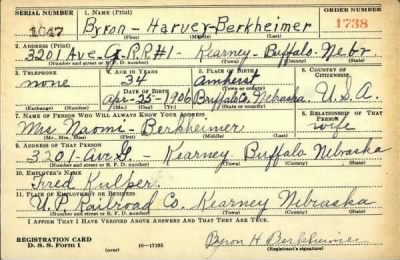 SERIAL NUMBER 1. NAME (Print) ORDER NUMBER
1047 Byron - Harvey - Berkheimer 1738
(First) (Middle) (Last)
2. ADDRESS (Print)
3201 Ave G - R.R#1 - Kearney - Buffalo - Nebr.
(Number and street or R. F. D. number) (Town) (County) (State)
3. TELEPHONE 4. AGE IN YEARS 5. PLACE OF BIRTH 6. COUNTRY OF CITIZENSHIP
none 34 Amherst
DATE OF BIRTH
Apr-25-1906 Buffalo Co, Nebraska U.S.A.
(Exchange) (Number) (Mo.) (Day) (Yr.) (State or country)
7. NAME OF PERSON WHO WILL ALWAYS KNOW YOUR ADDRESS 8. RELATIONSHIP OF THAT PERSON
Mrs. Naomi - Berkheimer wife
(Mr., Mrs., Miss) (First) (Middle) (Last)
9. ADDRESS OF THAT PERSON
3201-Ave G Kearney Buffalo Nebraska
(Number and street or R. F. D. number) (Town) (County) (State)
10. EMPLOYER'S NAME
Fred Kulper.
11. PLACE OF EMPLOYMENT OR BUSINESS
U.P. Railroad Co. Kearney Nebraska
(Number and street or R. F. D. number) (Town) (County) (State)
I AFFIRM THAT I HAVE VERIFIED ABOVE ANSWERS AND THAT THEY ARE TRUE.
REGISTRATION CARD
D. S. S. Form 1 (over) 16-17105 Byron H Berkheimer
(Registrant's signature)